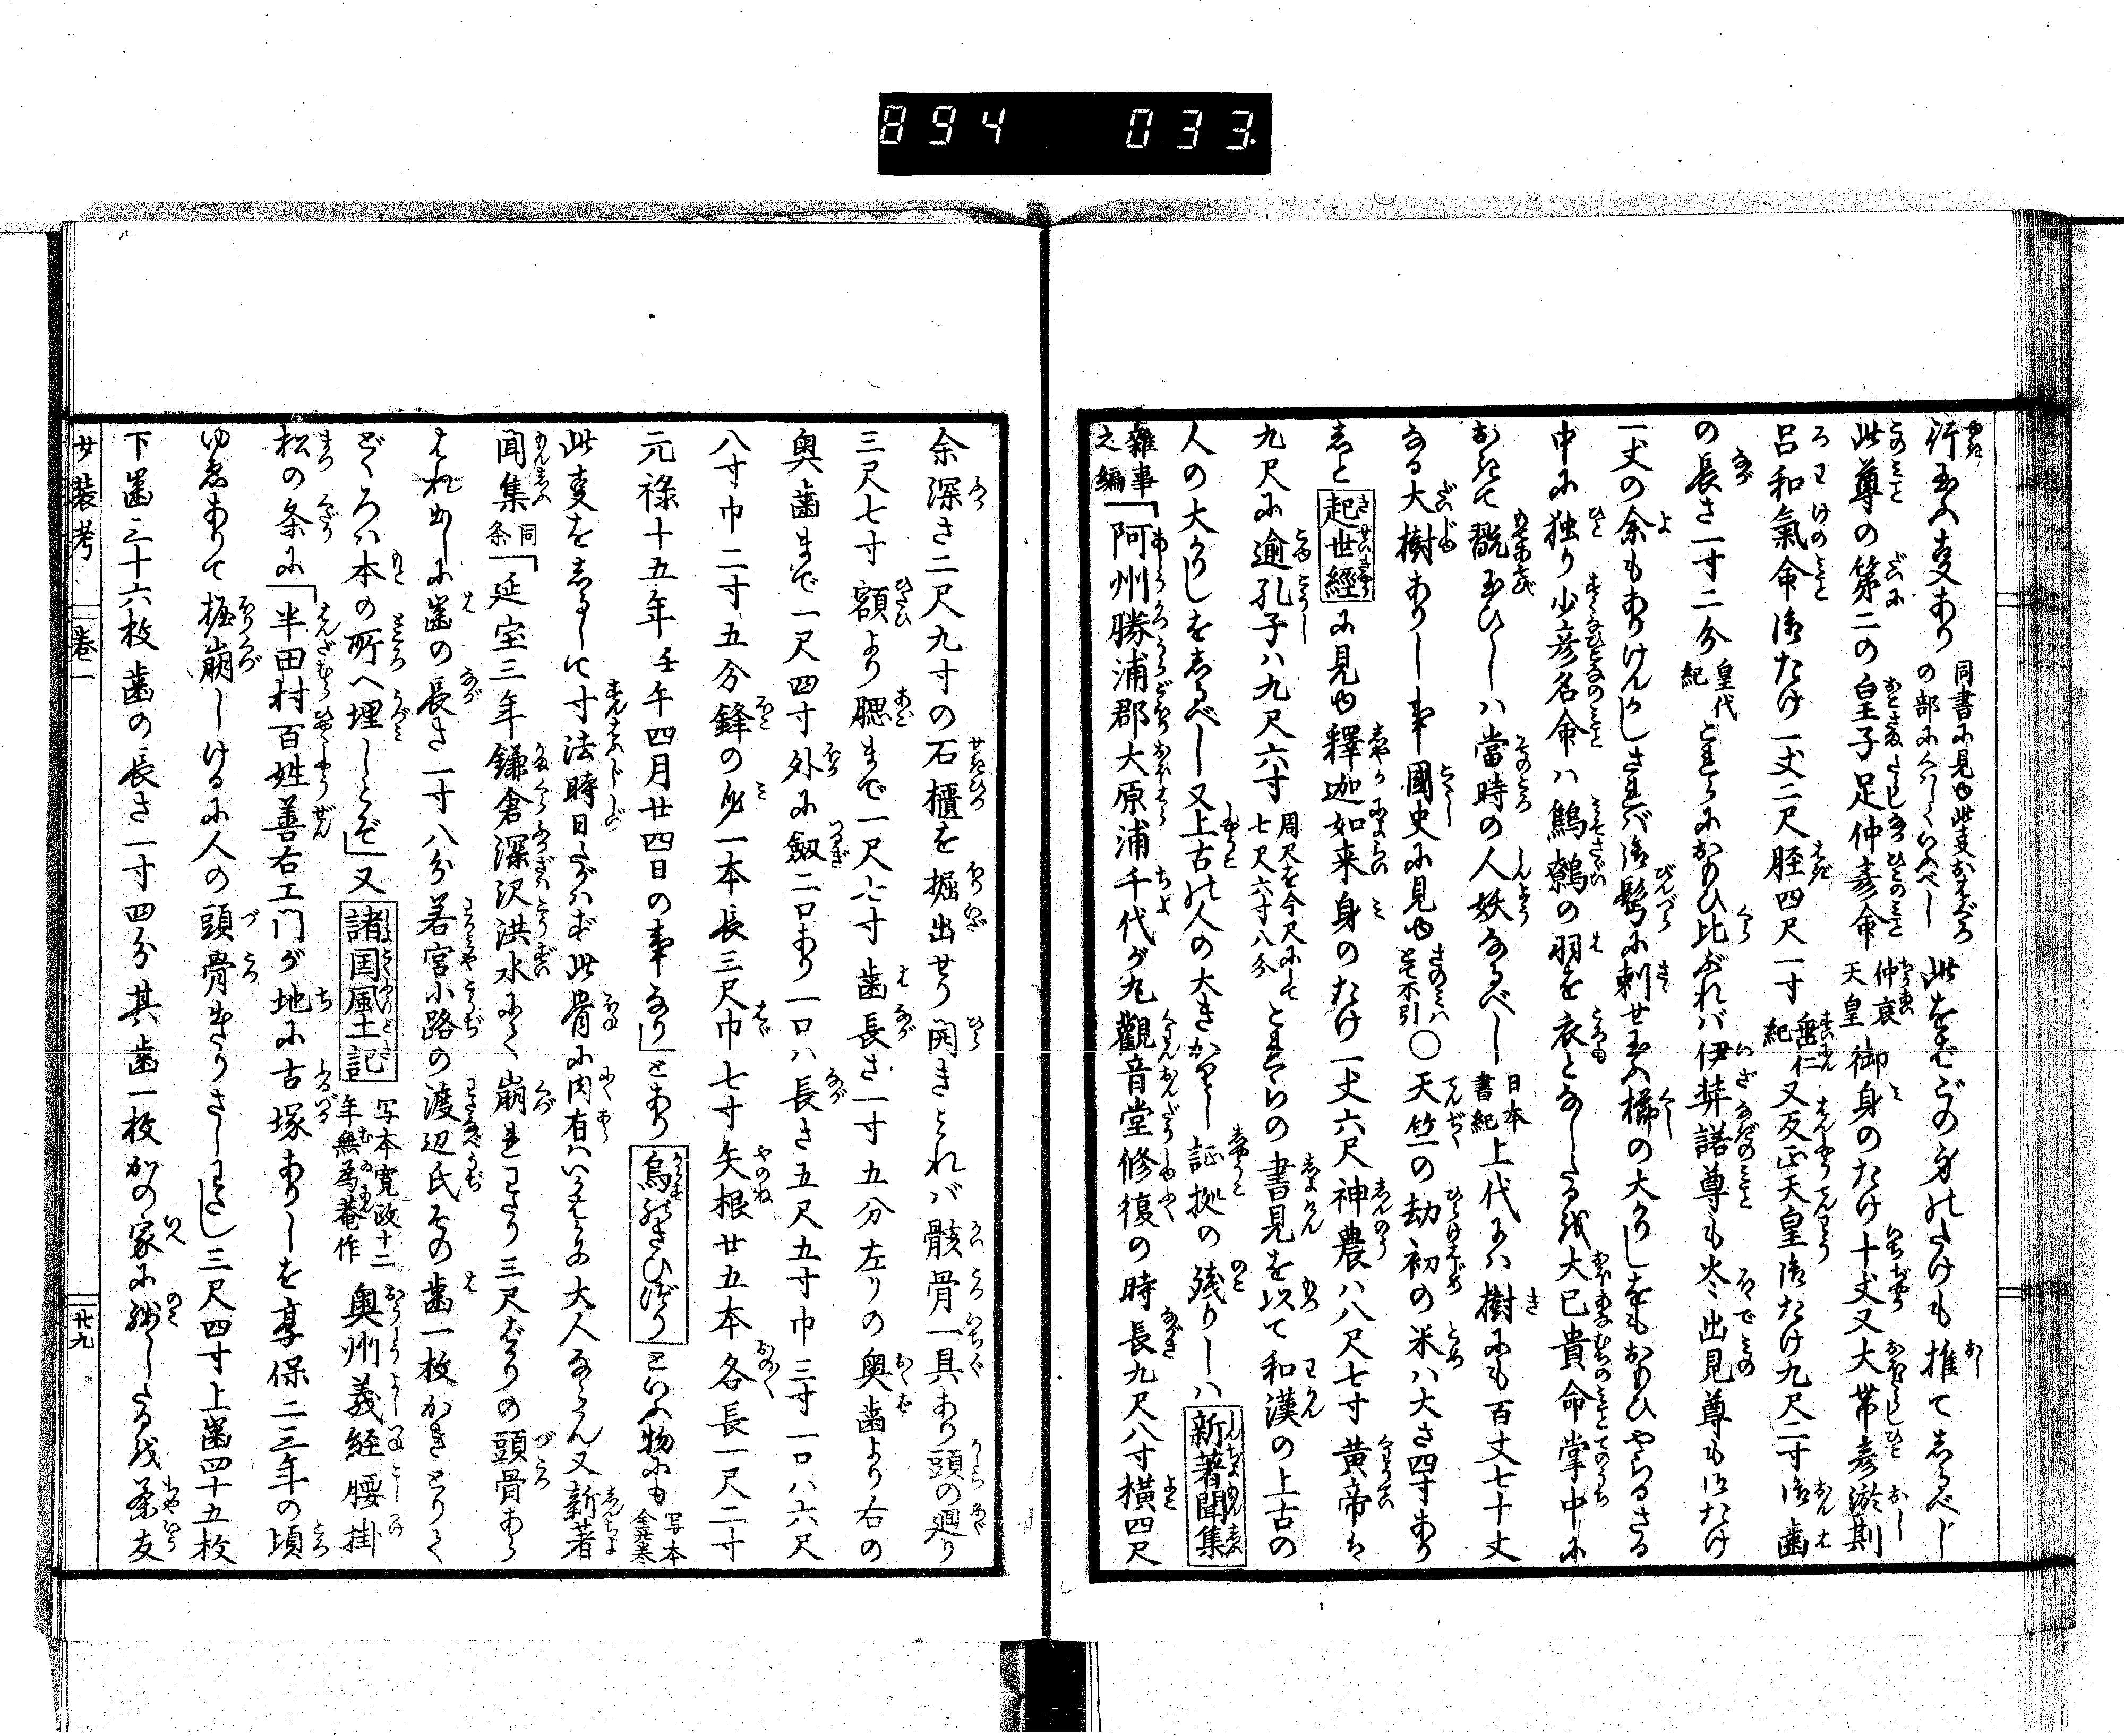 894 033
行玉ふ事あり 同書に見ゆ此事おはぐろの部にくはしくいふべし 此をぢの身のたけも推てしるべし
此尊の第二の皇子足仲彦命 仲哀天皇 御身のたけ十丈又大帯彦淤斯
呂和氣命御たけ一丈二尺胫四尺一寸 垂仁紀 又反正天皇御たけ九尺二寸御歯
の長さ一寸二分 皇代紀 これらにおもひ比ぶれバ伊弉諾尊も火々出見尊も御たけ
一丈の余もありけんかしさればバ御髻に刺せ玉ふ櫛の大かりしをもおもひやらるさる
中に独り少彦名命ハ鷦鷯の羽を衣となしたるを大己貴命掌中に
おきて翫玉ひしハ當時の人妖なるべし 日本書紀 上代にハ樹にも百丈七十丈
なる大樹ありし事國史に見ゆ こゝに不引 ○天竺の劫初の米ハ大さ四寸あり
しと起世經に見ゆ釋迦如来身のたけ一丈六尺神農ハ八尺七寸黄帝は
九尺に逾孔子ハ九尺六寸 周尺を今尺にして七尺六寸八分 これらの書見を以て和漢の上古の
人の大かりしをしるべし又上古の人の大きかりし証拠の残りしハ新著聞集
雑事之編「阿州勝浦郡大原浦千代が丸觀音堂修復の時長九尺八寸横四尺
余深さ二尺九寸の石櫃を掘出せり開きみれバ骸骨一具あり頭の廻り
三尺七寸額より腮まで一尺六寸歯長さ一寸五分左りの奥歯より右の
奥歯まで一尺四寸外に劔二口あり一口ハ長さ五尺五寸巾三寸一口ハ六尺
八寸巾二寸五分鋒の身一本長三尺巾七寸矢根廿五本各長一尺二寸
元禄十五年壬午四月廿四日の事なり」とあり烏のさひづりといふ物にも 写本全卷
此事をしるしに寸法時日たがハず此骨に肉有ハいかばかりの大人ならん又新著
聞集 同条「延宝三年鎌倉深沢洪水にて崩れわたり三尺ばかりの頭骨あら
はれ出しに歯の長さ一寸八分若宮小路の渡辺氏その歯一枚かきとりて
どくろハ本の所へ埋しとぞ」又諸国風土記 写本寛政十二年無為菴作 奥州義経腰掛
松の条に「半田村百姓善右エ門が地に古塚ありしを享保二三年の頃
ゆゑありて掘崩しけるに人の頭骨出たりさしわたし三尺四寸上歯四十五枚
下歯三十六枚歯の長さ一寸四分其歯一枚かの家に残したるを桑友
廿装考 卷一 廿九